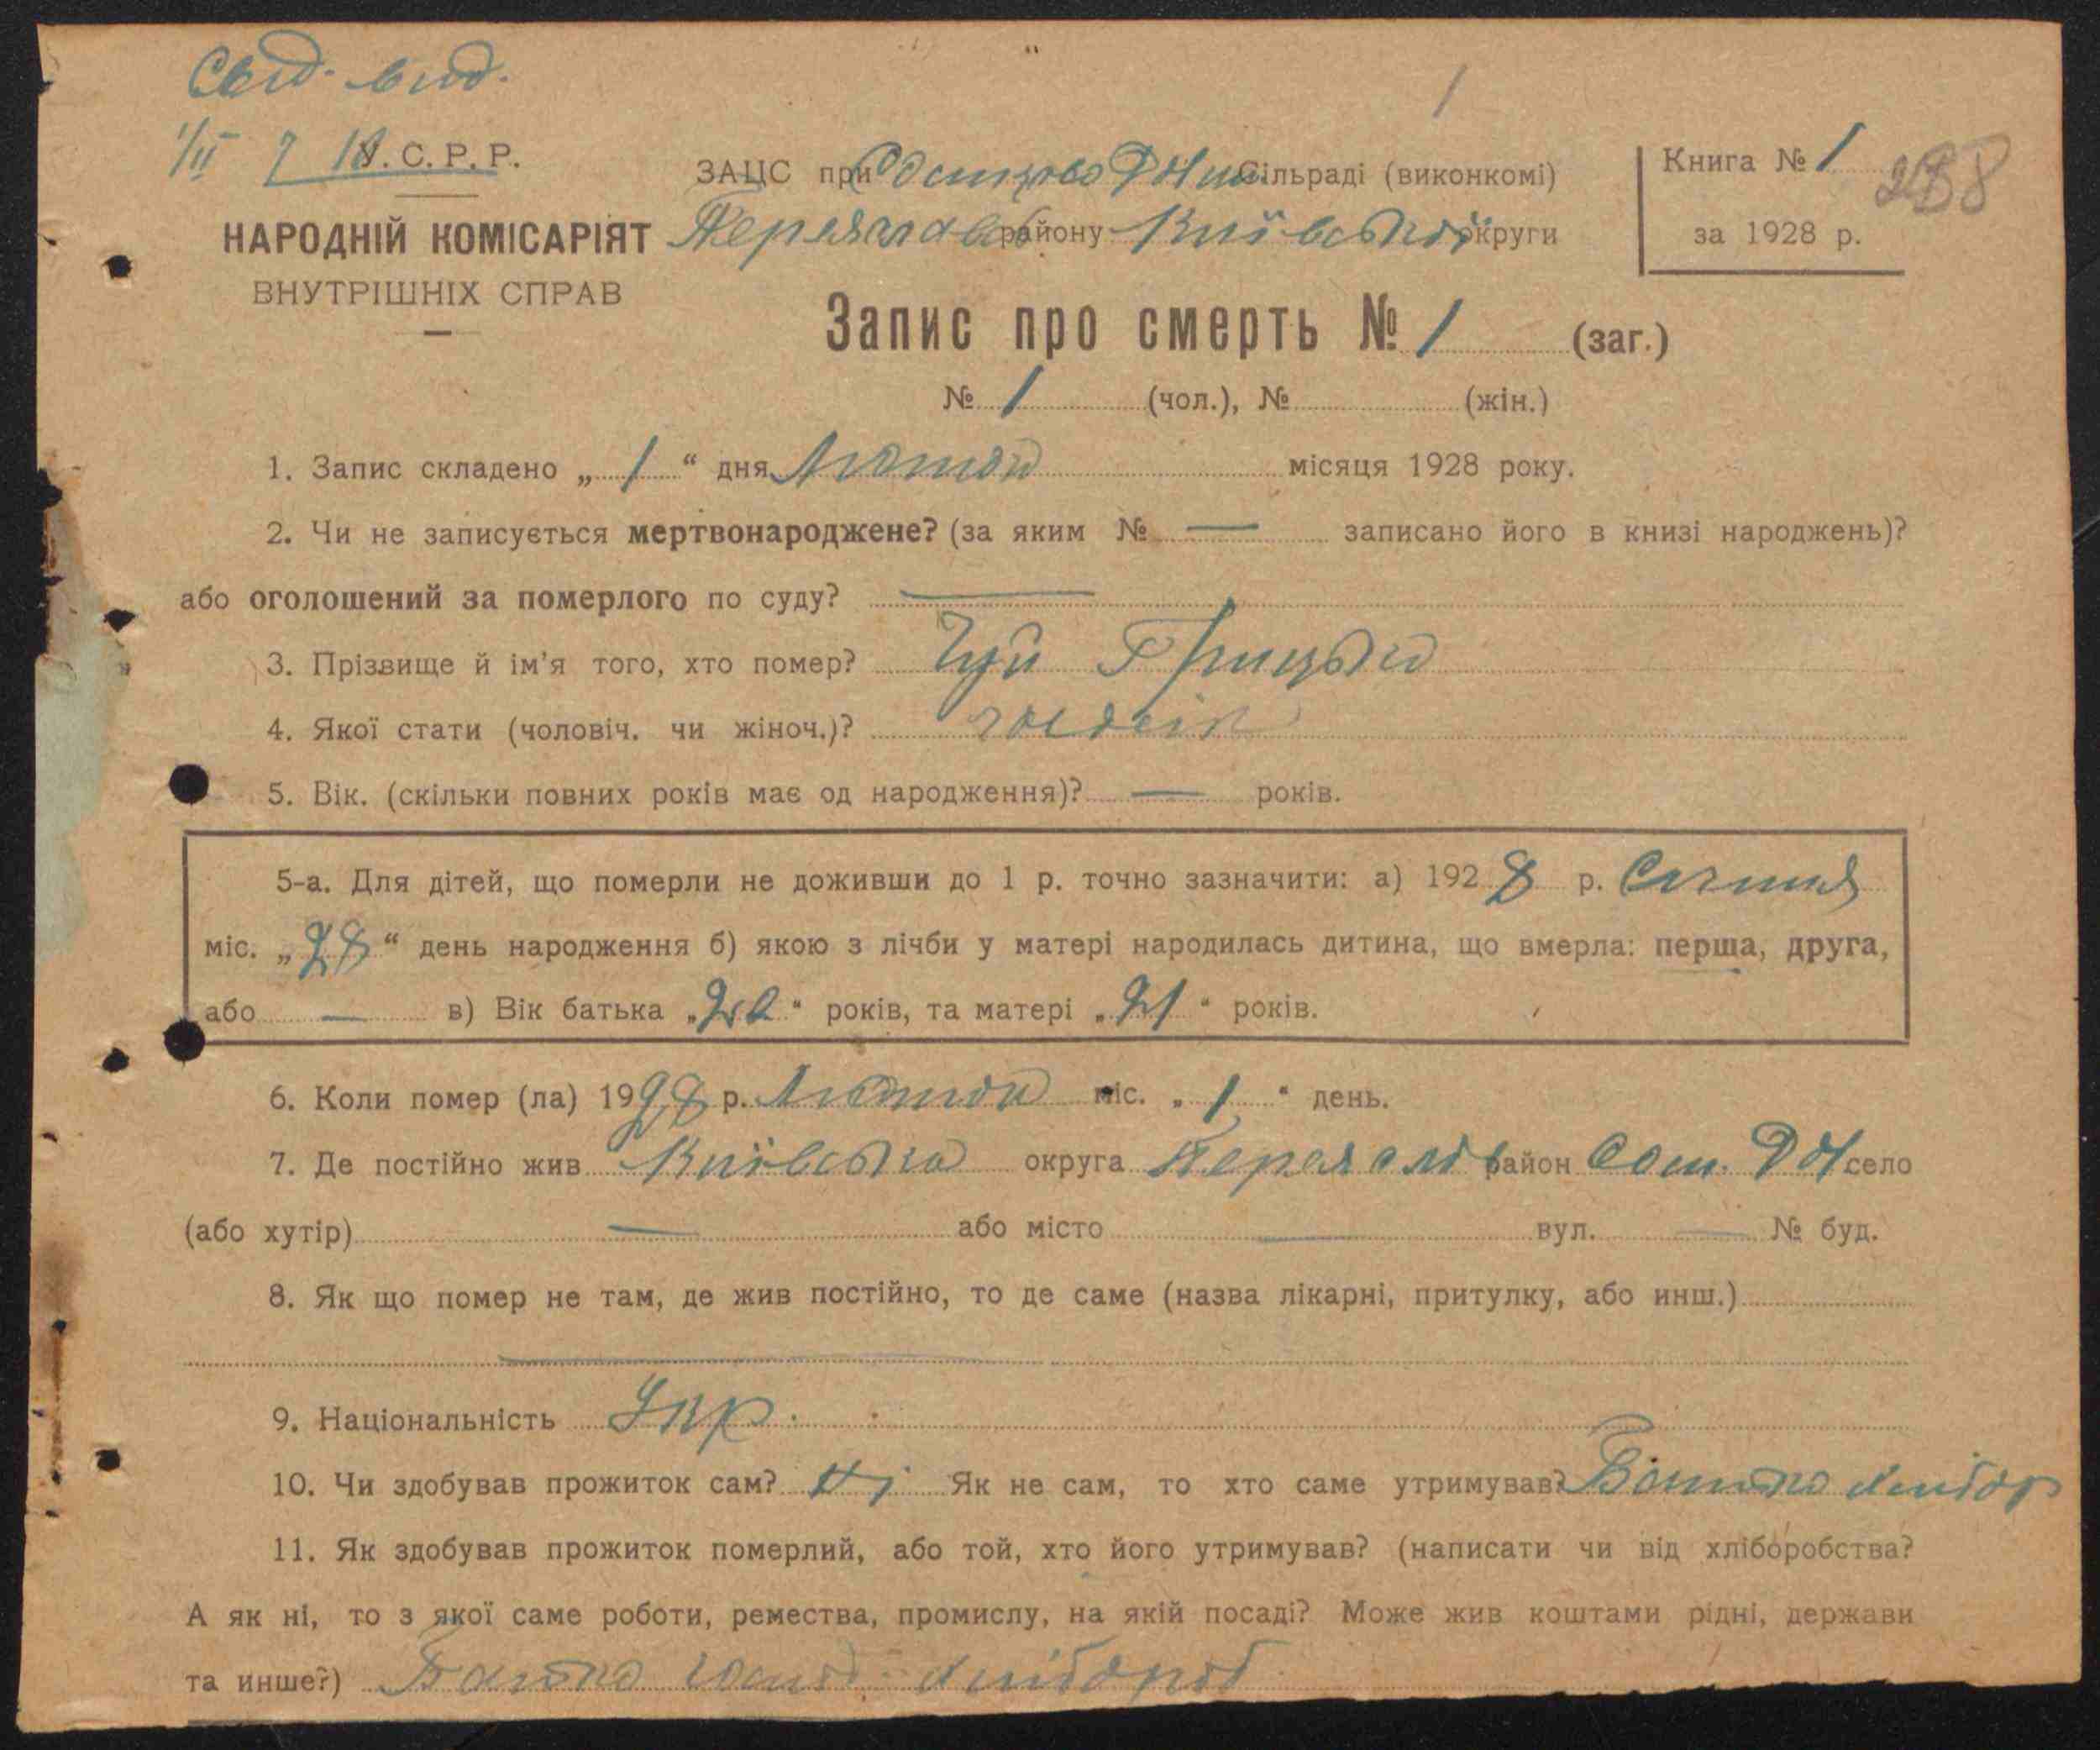 Свид. вид.
1/II
У. С. Р. Р.
НАРОДНІЙ КОМІСАРІЯТ
ВНУТРІШНІХ СПРАВ
ЗАЦС при Сільраді (виконкомі)
Переяслав району Київської округи
Книга № 1
за 1928 р.
Запис про смерть № 1 (заг.)
№ 1 (чол.), № (жін.)
1. Запис складено „ 1 “ дня Лютого місяця 1928 року.
2. Чи не записується мертвонароджене? (за яким № — записано його в книзі народжень)?
або оголошений за померлого по суду? —
3. Прізвище й ім'я того, хто помер? Чуй Грицько
4. Якої стати (чоловіч. чи жіноч.)? чоловік
5. Вік. (скільки повних років має од народження)? — років.
5-а. Для дітей, що померли не доживши до 1 р. точно зазначити: а) 1928 р. Січння
міс. „28“ день народження б) якою з лічби у матері народилась дитина, що вмерла: перша, друга,
або — в) Вік батька „ “ років, та матері „21“ років.
6. Коли помер (ла) 1928 р. Лютого міс. „ 1 “ день.
7. Де постійно жив Київська округа Переяслів район село
(або хутір) — або місто — вул. — № буд.
8. Як що помер не там, де жив постійно, то де саме (назва лікарні, притулку, або инш.)
—
9. Національність Укр.
10. Чи здобував прожиток сам? Ні Як не сам, то хто саме утримував? Батько хлібор
11. Як здобував прожиток померлий, або той, хто його утримував? (написати чи від хліборобства?
А як ні, то з якої саме роботи, ремества, промислу, на якій посаді? Може жив коштами рідні, держави
та инше?) Батько хлібороб